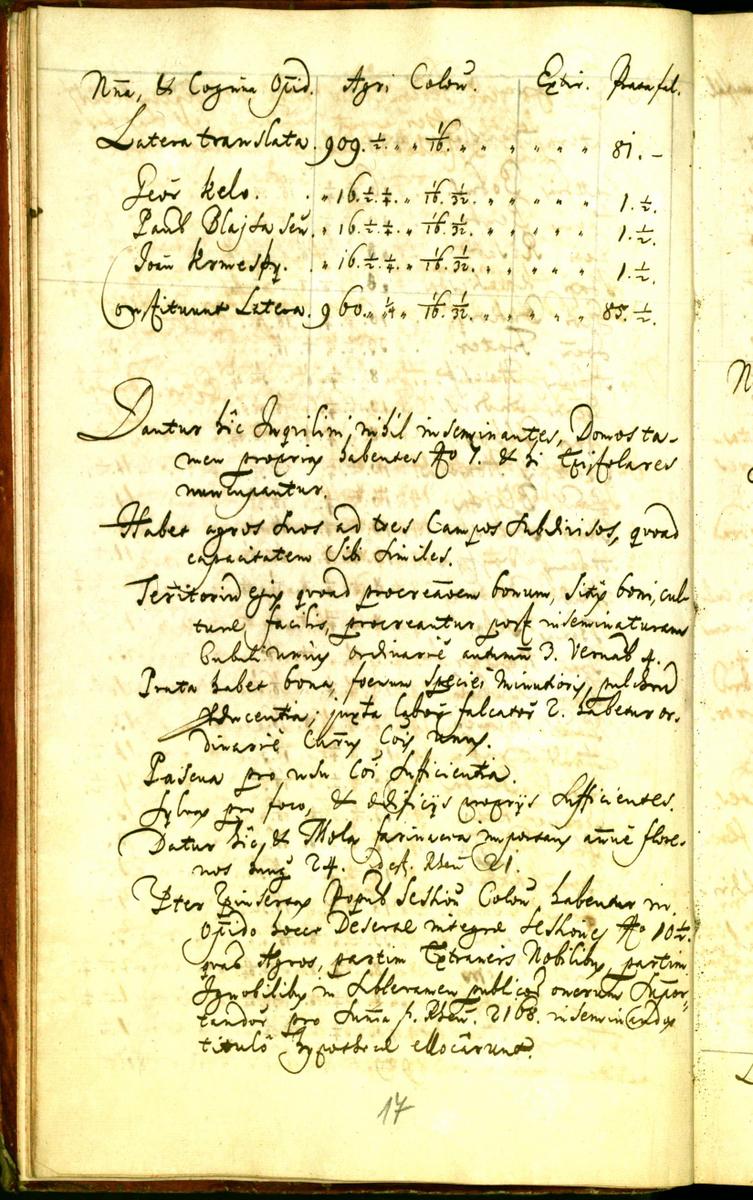 Nna, & Cogña Opid. Agri Colon. Extir. Prata fal.
Latera translata. 909. ½. „ „ 1/16. „ „ „ „ „ „ 81. –
Geor Kelo. . „ 16. ½. ¼. „ 1/16. 1/32. „ „ „ „ „ 1. ½.
Paul Blajta Sen. „ 16. ½. ¼. „ 1/16. 1/32. „ „ „ „ „ 1. ½.
Joan Krmesky. „ 16. ½. ¼. „ 1/16. 1/32. „ „ „ „ „ 1. ½.
Constituunt Latera. 960. „ ¼ „ 1/16. 1/32. „ „ „ „ „ 85. ½.
Dantur hic Inqvilini, nihil inseminantes, Domos ta-
men proprias habentes No 7. & hi
nuncupantur.
Habet agros suos ad tres Campos subdivisos, qvoad
capacitatem sibi similes.
Territoriū ejus qvoad procreāōem bonum, sitūs boni, cul-
turæ facilis, procreantur post inseminaturam
Cubuli unius ordinariè autumn 3. Vernal 4.
Prata habet bona, foenum speciei minutioris, pulchrū
; juxta labor falcator 2. habetur or-
dinariè Currus Cois unus.
Pascua pro usu Coi sufficientia.
Sylvas pro foco, & ædificijs proprijs sufficientes.
Datur hic, & Mola farinacea importans annuè flore-
nos hung 24. dest. Rhen 21.
Pter Popul Session Colon habentur in
Opido hocce Desertæ integræ sessiones No 10 ½.
qvas Agros, partim Extraneis Nobilibus, partim
Ignobilibus in sublevamen publicor onerum suppor-
tandor pro Summa f. Rhen. 2168. inseminandos
titulo hypothecæ ellocarunt.
17